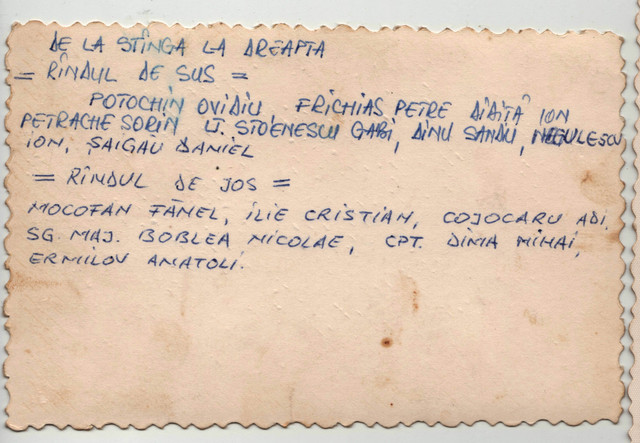 DE LA STÎNGA LA DREAPTA
= RÎNDUL DE SUS =
POTOCHIN OVIDIU FRICHIAS PETRE DIDIȚĂ ION
PETRACHE SORIN LT. STOENESCU GABI, DINU SANDU, NEGULESCU
ION, ȘAIGAU DANIEL
= RÎNDUL DE JOS =
MOCOFAN FĂNEL, ILIE CRISTIAN, COJOCARU ADI,
SG. MAJ. BOBLEA NICOLAE, CPT. DIMA MIHAI,
ERMILOV ANATOLI.